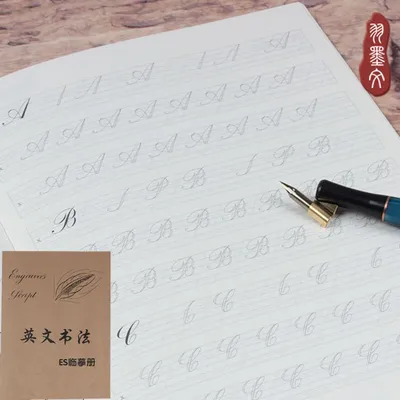 羽墨文
A A A A A
A A A A A A A A
A A A A A A A A
B P B B P B
B B B B B B B B
B B B B B B B B
C C C C C
C C C C C C C C
Engravers
Script
英文书法
ES临摹册